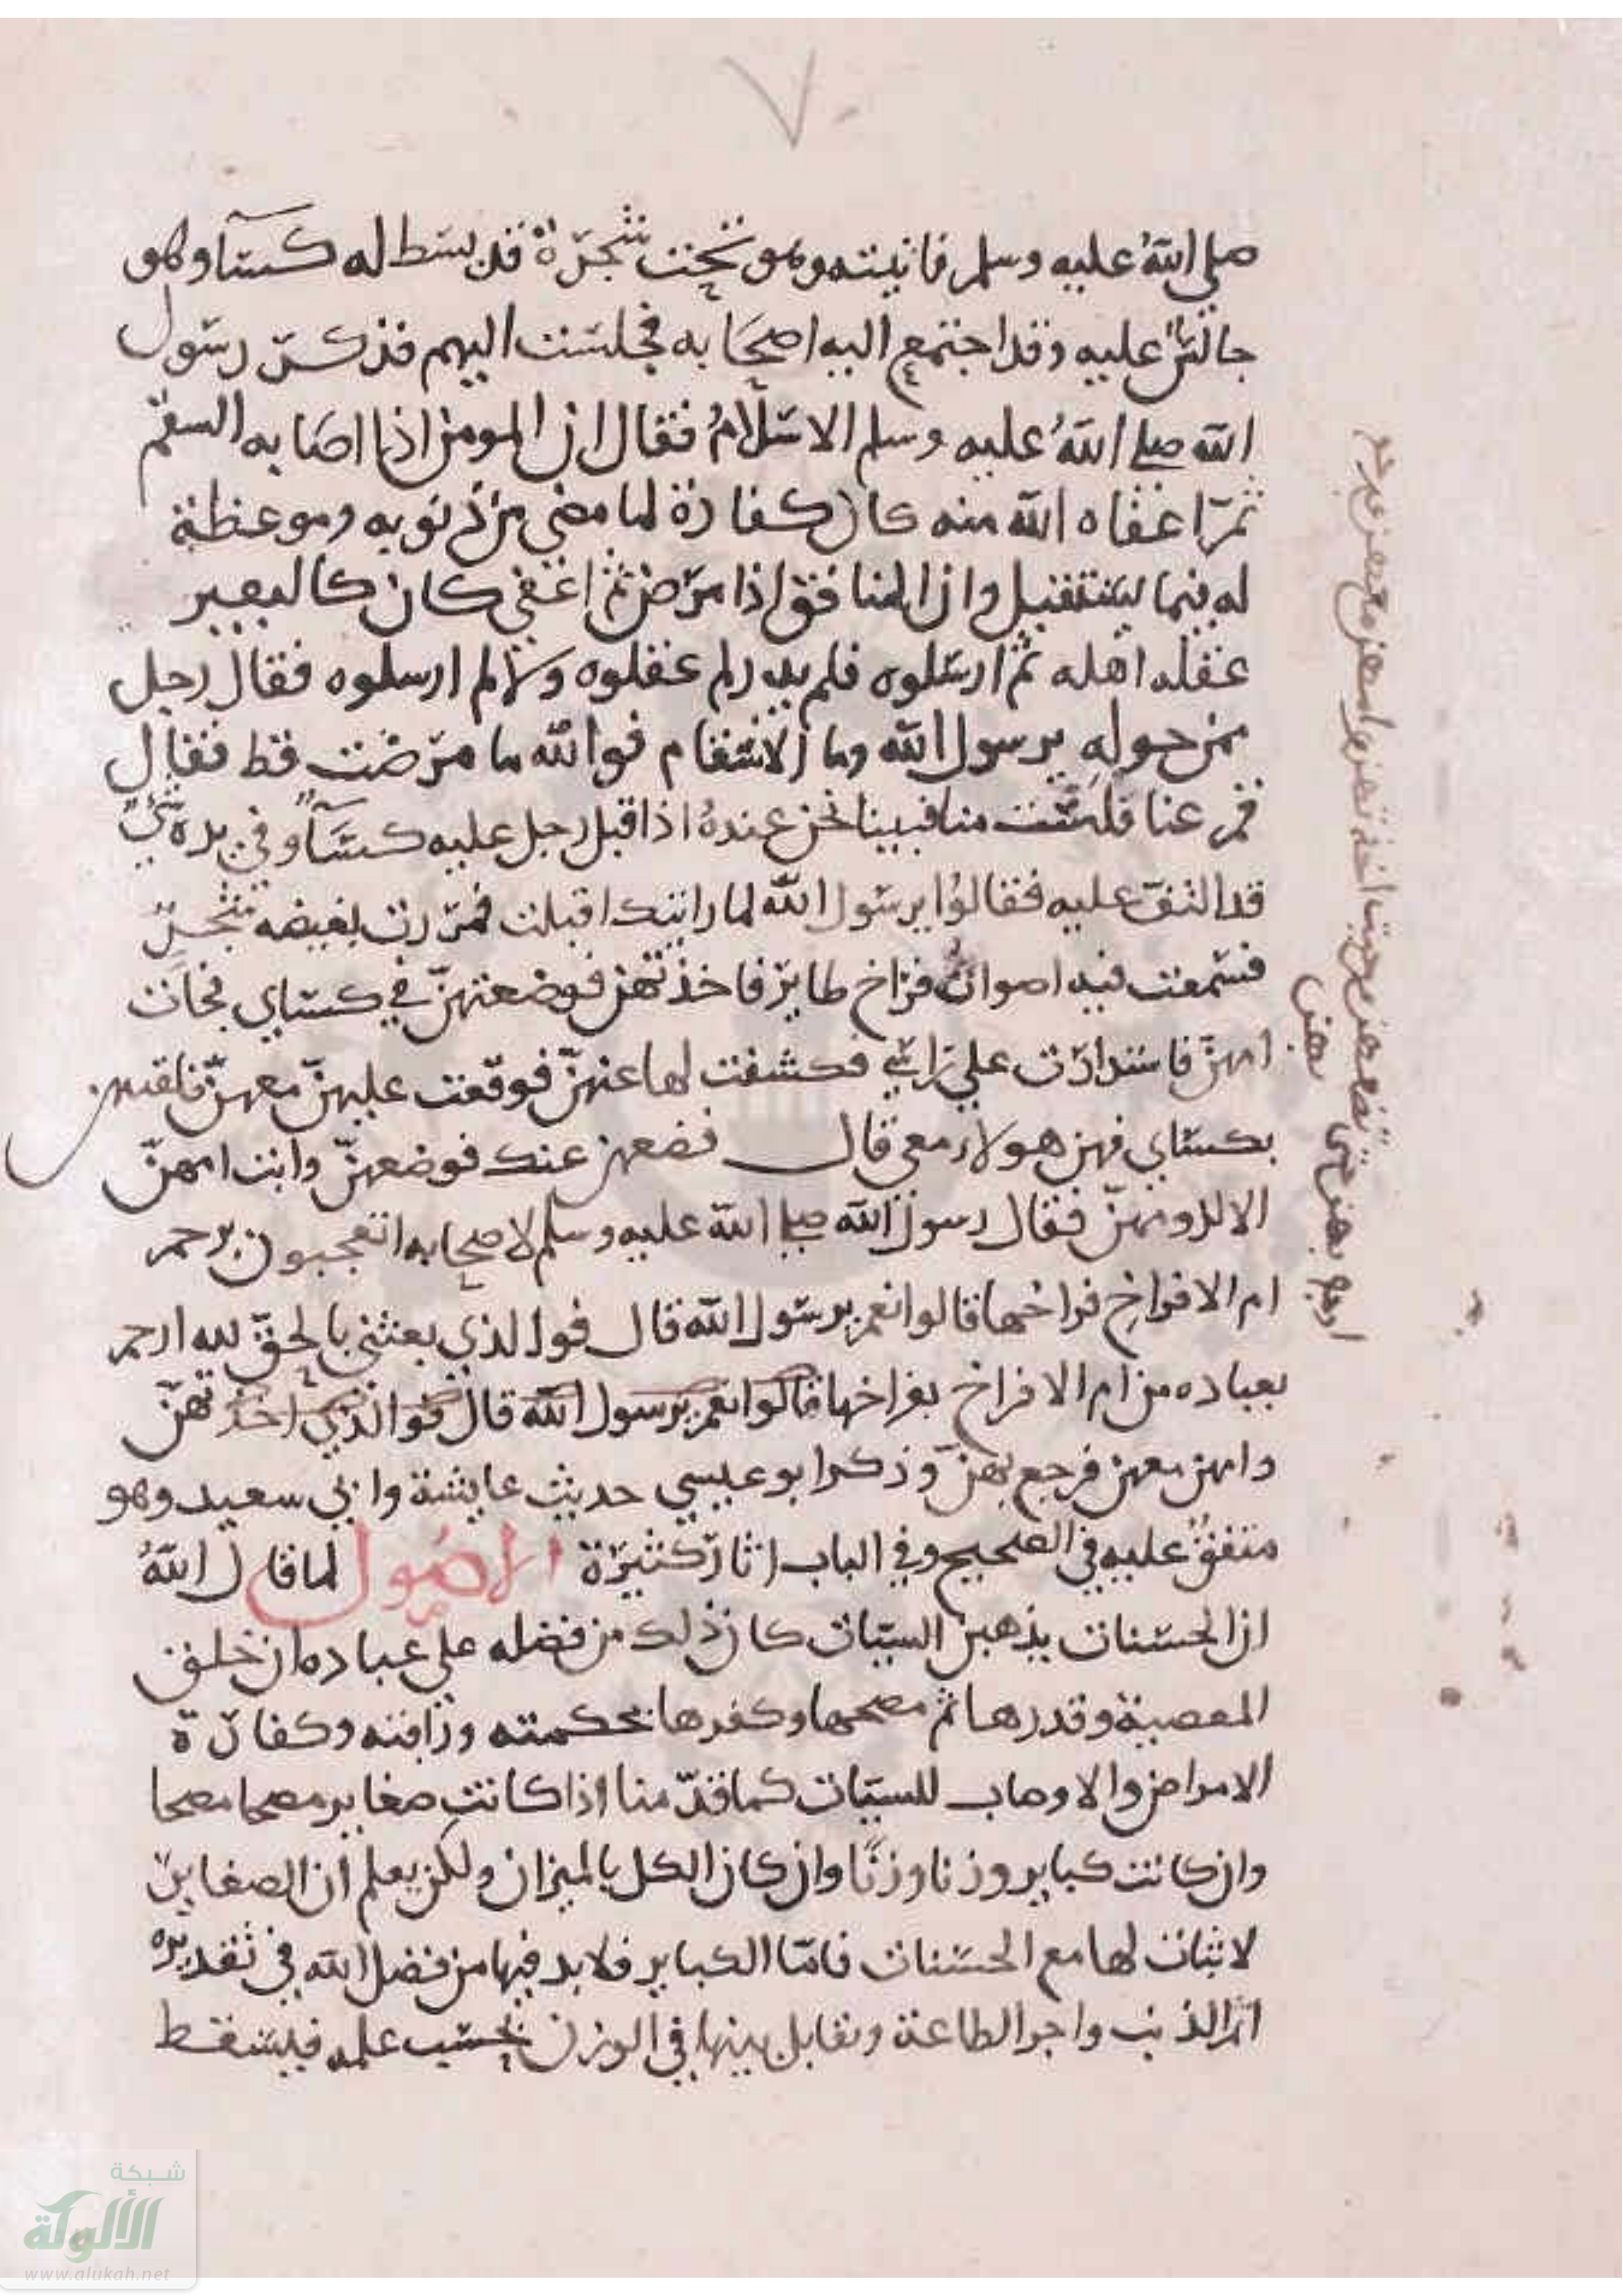 ٧
صلي اللهُ عليه وسلم فاتيته وهو تحت شجرة قد بسط له كسآ وهو
جالسٌ عليه وقد اجتمع اليه اصحابه فجلست اليهم فذكر رسول
الله صلى اللهُ عليه وسلم الاسقامُ فقال ان المومن اذا اصابه السقم
ثم اعفاه الله منه كان كفارة لما مضي من ذنوبه وموعظة
له فيما يستقبل وان المنافق اذا مرض ثم اعفي كان كالبعير
عقله اهله ثم ارسلوه فلم يدر لم عقلوه ولا لم ارسلوه فقال رجل
ممن حوله يرسول الله وما الاسقام فوالله ما مرضت قط فقال
قم عنا فلست منا فبينا نحن عندهُ اذ اقبل رجل عليه كسآ وفي يده شيٌ
قد التف عليه فقالوا يرسول الله لما رايتك اقبلت فمررت بغيضه شجرٍ
فسمعت فيه اصواتُ فراخ طاير فاخذتهن فوضعتهنّ في كساي فجات
امهنّ فاستدارت علي راسي فكشفت لها عنهنّ فوقعت عليهنّ معهنّ فلففتهن
بكساي فهن هولاء معي قال فضعهن عنك فوضعهنّ وابت امهنّ
الا لزومهنّ فقال رسول الله صلى الله عليه وسلم لاصحابه اتعجبون برحم
ام الافراخ فراخها قالوا نعم يرسول الله قال فوا لذي بعثني بالحق لله ارحم
بعباده من ام الافراخ بفراخها قالوا نعم يرسول الله قال فوالذي اخذتهنّ
وامهن معهن فرجع بهنّ وذكر ابو عيسي حديث عايشة وابي سعيد وهو
متفقٌ عليه في الصحيح وفي الباب اثار كثيرة الاصول لما قال اللهُ
ان الحسنات يذهبن السيات كان ذلك من فضله علي عباده ان خلق
المعصية وقدرها ثم محصها وكفرها بحكمته ورافته وكفارة
الامراض والاوصاب للسيّات كما قدّمنا اذا كانت صغاير محصا محصا
وان كانت كباير وزنا وزنًا وان كان الكل بالميزان ولكن يعلم ان الصغاير
لا ثبات لها مع الحسنات فامّا الكباير فلابد فيها من فضل الله في تقديره
اثم الذنب واجر الطاعة وتقابل بينها في الوزن بحسب علمه فيسقط
ارجع بهن حتى تضعهن من حيث اخذتهن وامهن معهن فرجع
بهن
شبكة
الألوكة
www.alukah.net